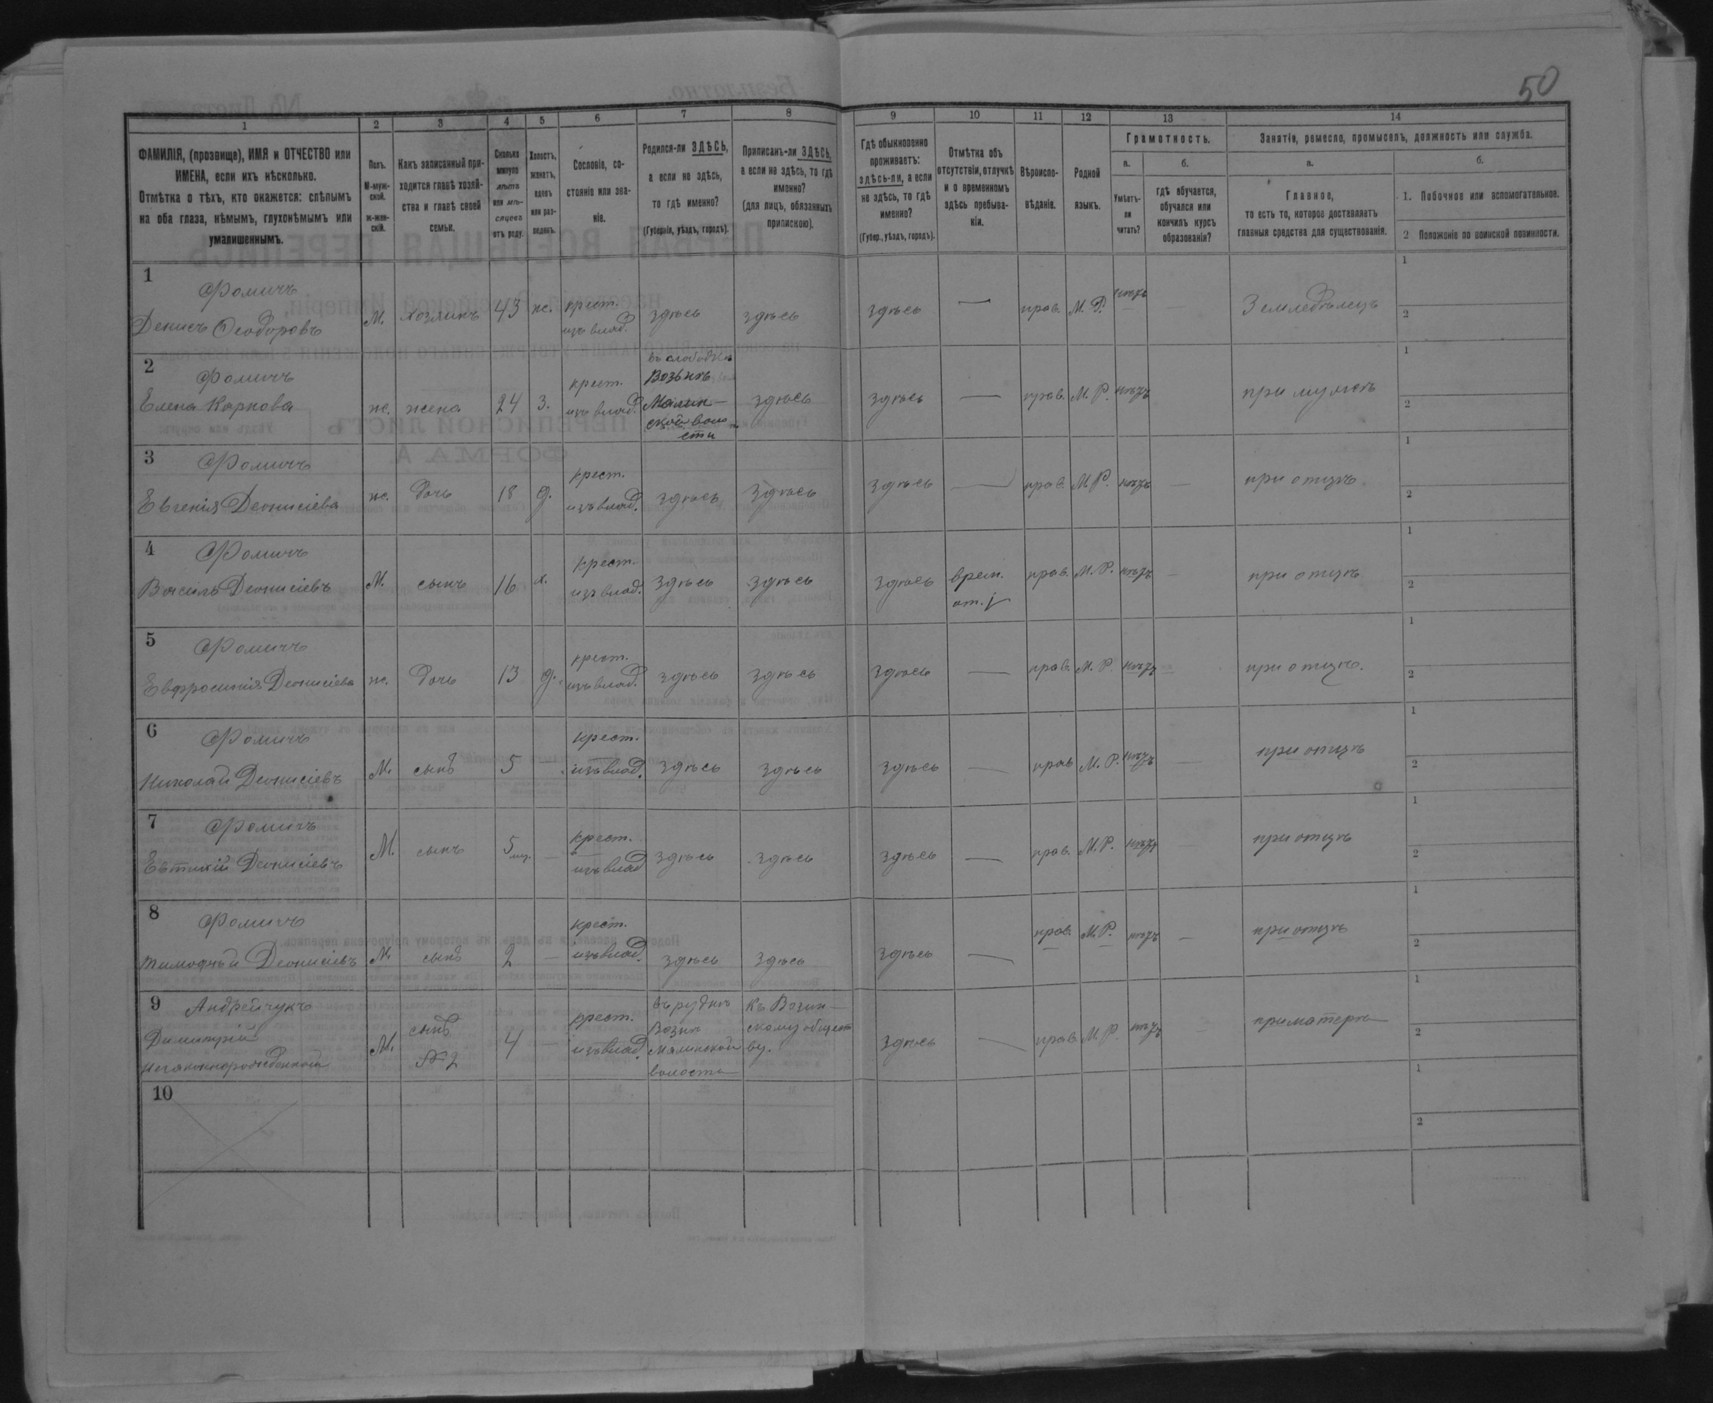 50
1 2 3 4 5 6 7 8 9 10 11 12 13 14
ФАМИЛІЯ, (прозвище), ИМЯ и ОТЧЕСТВО или
ИМЕНА, если ихъ нѣсколько.
Отмѣтка о тѣхъ, кто окажется: слѣпымъ
на оба глаза, нѣмымъ, глухонѣмымъ или
умалишеннымъ.
Полъ.
М-муж-
ской.
ж-жен-
скій.
Какъ записанный при-
ходится главѣ хозяй-
ства и главѣ своей
семьи.
Сколько
минуло
лѣтъ
или мѣ-
сяцевъ
отъ роду.
Холостъ,
женатъ,
вдовъ
или раз-
веденъ.
Сословіе, со-
стояніе или зва-
ніе.
Родился-ли ЗДѢСЬ,
а если не здѣсь,
то гдѣ именно?
(Губернія, уѣздъ, городъ).
Приписанъ-ли ЗДѢСЬ,
а если не здѣсь, то гдѣ
именно?
(для лицъ, обязанныхъ
припискою).
Гдѣ обыкновенно
проживаетъ:
здѣсь-ли, а если
не здѣсь, то гдѣ
именно?
(Губер., уѣздъ, городъ).
Отмѣтка объ
отсутствіи, отлучкѣ
и о временномъ
здѣсь пребыва-
ніи.
Вѣроиспо-
вѣданіе.
Родной
языкъ.
Грамотность.
а.
Умѣетъ-
ли
читать?
б.
гдѣ обучается,
обучался или
кончилъ курсъ
образованія?
Занятіе, ремесло, промыселъ, должность или служба.
а.
Главное,
то есть то, которое доставляетъ
главныя средства для существованія.
б.
1. Побочное или вспомогательное.
2 Положеніе по воинской повинности.
1
Фомичъ
Денисъ Ѳеодоровъ
М. хозяинъ 43 ж. крест.
изъ влад. здѣсь здѣсь здѣсь — прав. М. Р. нѣтъ — Земледѣлецъ
1
2
2
Фомичъ
Елена Карпова
ж. жена 24 З. крест.
изъ влад.
Возьнѣ
Малин-
ской воло
сти
здѣсь здѣсь — прав. М. Р. нѣтъ при мужѣ
1
2
3
Фомичъ
Евгенія Деонисіева
ж. дочь 18 д. крест.
изъ влад. здѣсь здѣсь здѣсь — прав. М. Р. нѣтъ — при отцѣ
1
2
4
Фомичъ
Василь Деонисіевъ
М. сынъ 16 х. крест.
изъ влад. здѣсь здѣсь здѣсь врем.
от. прав. М. Р. нѣтъ — при отцѣ
1
2
5
Фомичъ
Евфросинія Деонисіева
ж. дочь 13 д. крест.
изъ влад. здѣсь здѣсь здѣсь — прав. М. Р. нѣтъ — при отцѣ.
1
2
6
Фомичъ
Николай Деонисіевъ
М. сынъ 5 крест.
изъ влад. здѣсь здѣсь здѣсь — прав. М. Р. нѣтъ — при отцѣ
1
2
7
Фомичъ
Евтихій Деонисіевъ
М. сынъ 5 — крест.
изъ влад здѣсь здѣсь здѣсь — прав. М. Р. нѣтъ — при отцѣ
1
2
8
Фомичъ
Тимофѣй Деонисіевъ
М. сынъ 2 — крест.
изъ влад. здѣсь здѣсь здѣсь — прав. М. Р. нѣтъ — при отцѣ
1
2
9
Андрейчукъ
Димитрій
незаконнорожденный
М. сынъ
№2
4 — крест.
изъ влад.
въ руднѣ
Возня
Малинской
волости
Къ Возин-
скому общест
ву.
здѣсь — прав. М. Р. нѣтъ — при матери
1
2
10
1
2